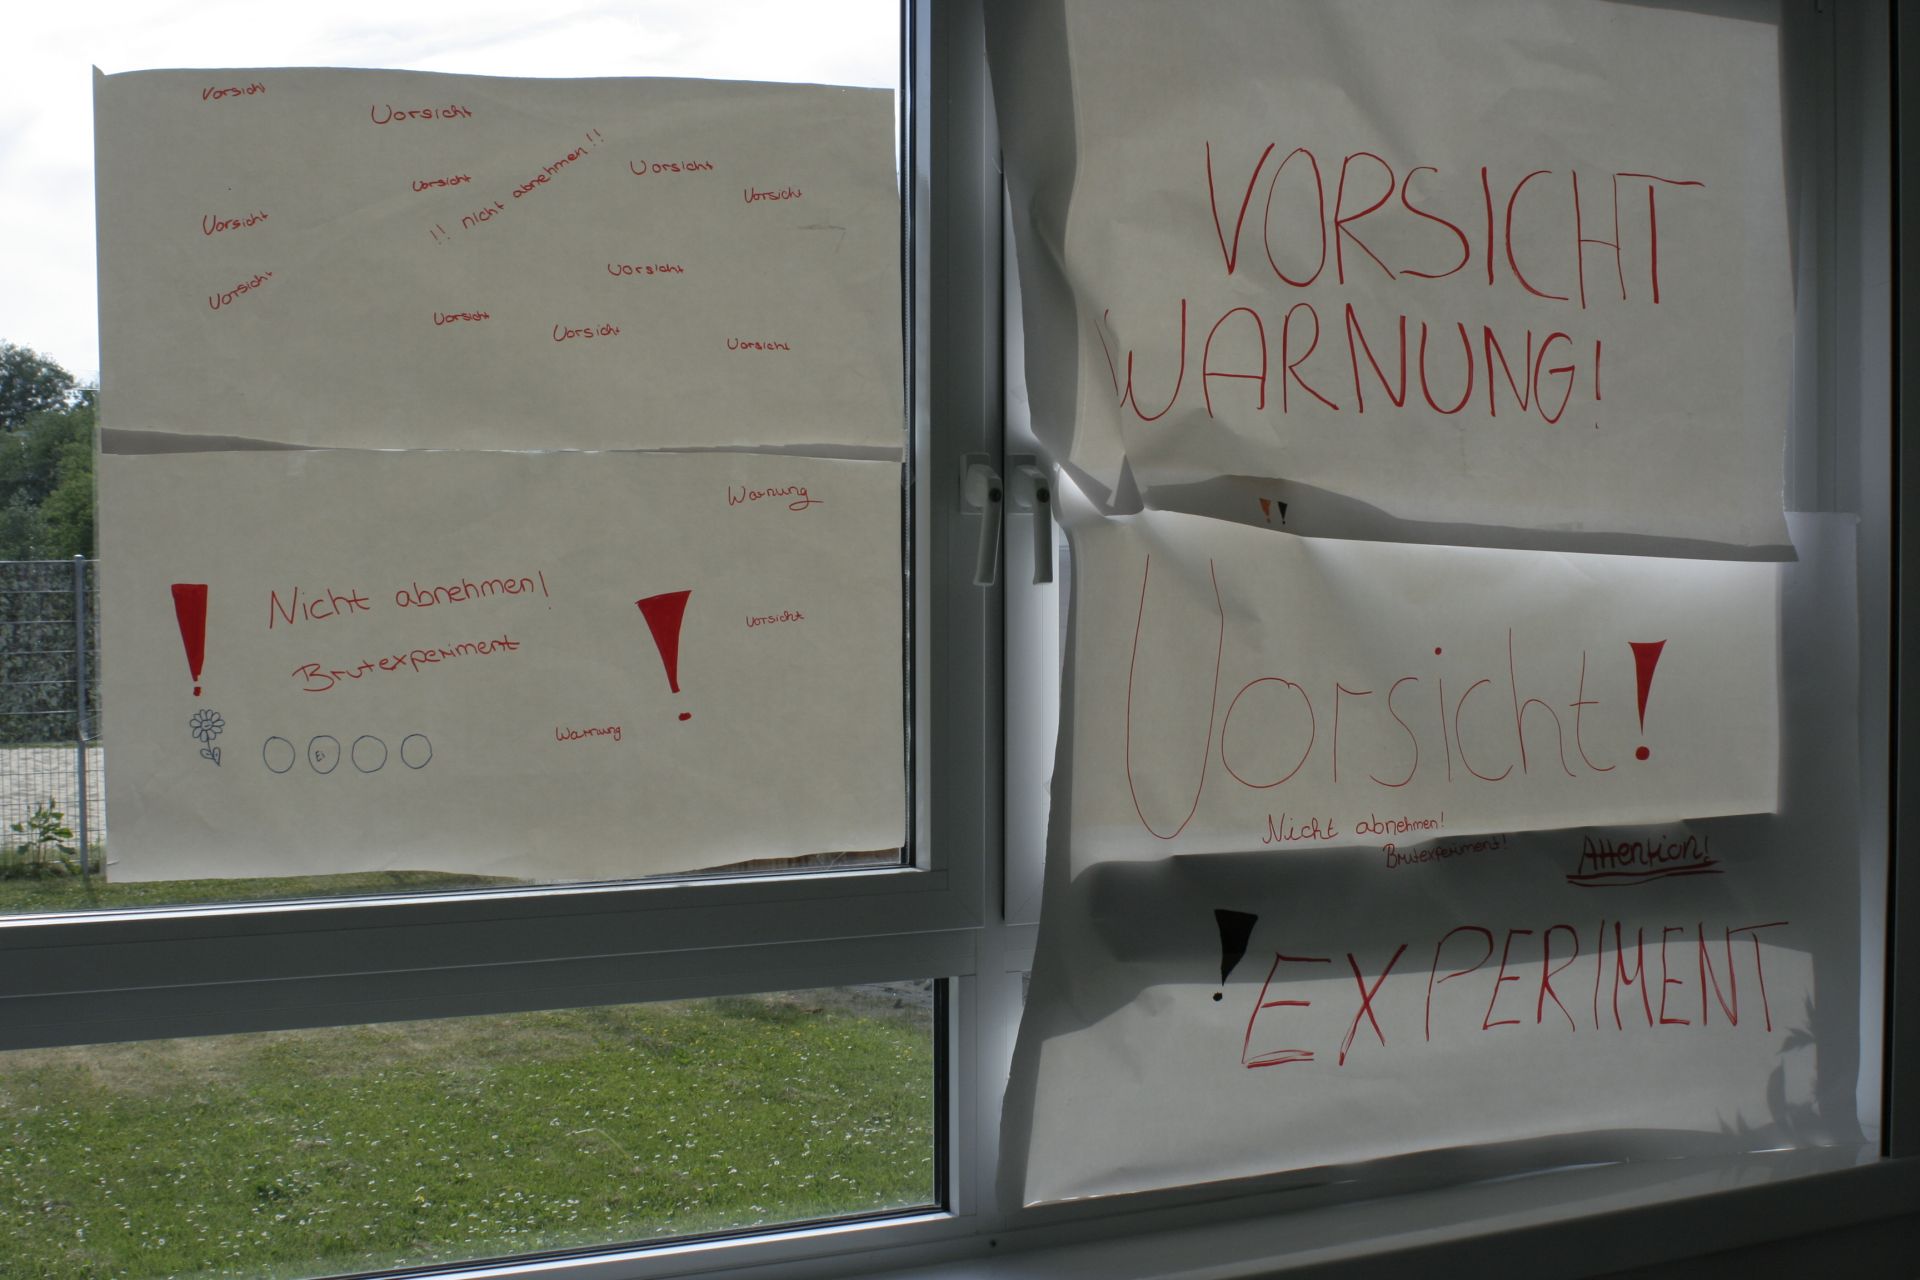 Vorsicht
Vorsicht
!! nicht abnehmen!!
Vorsicht
Vorsicht
Vorsicht
Vorsicht
Vorsicht
Vorsicht
Vorsicht
Vorsicht
Vorsicht
Warnung
! Nicht abnehmen! !
Brutexperiment
Vorsicht
Warnung
Ei
VORSICHT
WARNUNG!
!!
Vorsicht!
Nicht abnehmen!
Brutexperiment!
Attention!
! EXPERIMENT